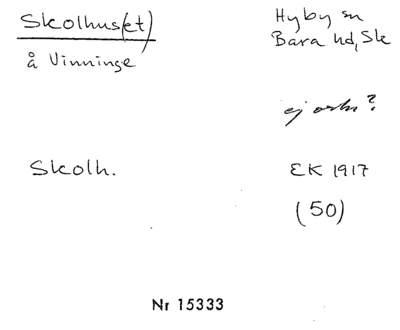 Skolhus(et)
Hyby sn
å Vinninge
Bara hd, Sk
ej ortn?
Skolh.
EK 1917
(50)
Nr 15333